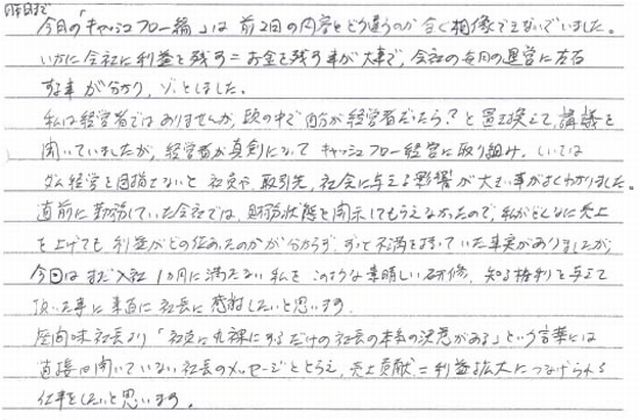 昨日まで
今日の「キャッシュフロー編」は前2回の内容とどう違うのか全く想像できないでいました。
いかに会社に利益を残す＝お金を残す事が大事で、会社の毎月の運営に左右
する事が分かり、ゾッとしました。
私は経営者ではありませんが、頭の中で自分が経営者だったら？と置き換えて、講義を
聞いていましたが、経営者が真剣になってキャッシュフロー経営に取り組み、しいては
ダム経営を目指さないと社員や、取引先、社会に与える影響が大きい事がよくわかりました。
直前に勤務していた会社では、財務状態を開示してもらえなかったので、私がどんなに売上
を上げても利益がどの位あったのかが分からず、ずっと不満を持っていた事実がありましたが、
今回はまだ入社1ヵ月に満たない私を、このような素晴しい研修、知る権利を与えて
頂いた事に素直に社長に感謝したいと思います。
社長より「社員に丸裸にするだけの社長の本気の決意がある」という言葉には
直接は聞いていない社長のメッセージととらえ、売上貢献＝利益拡大につなげられる
仕事をしたいと思います。